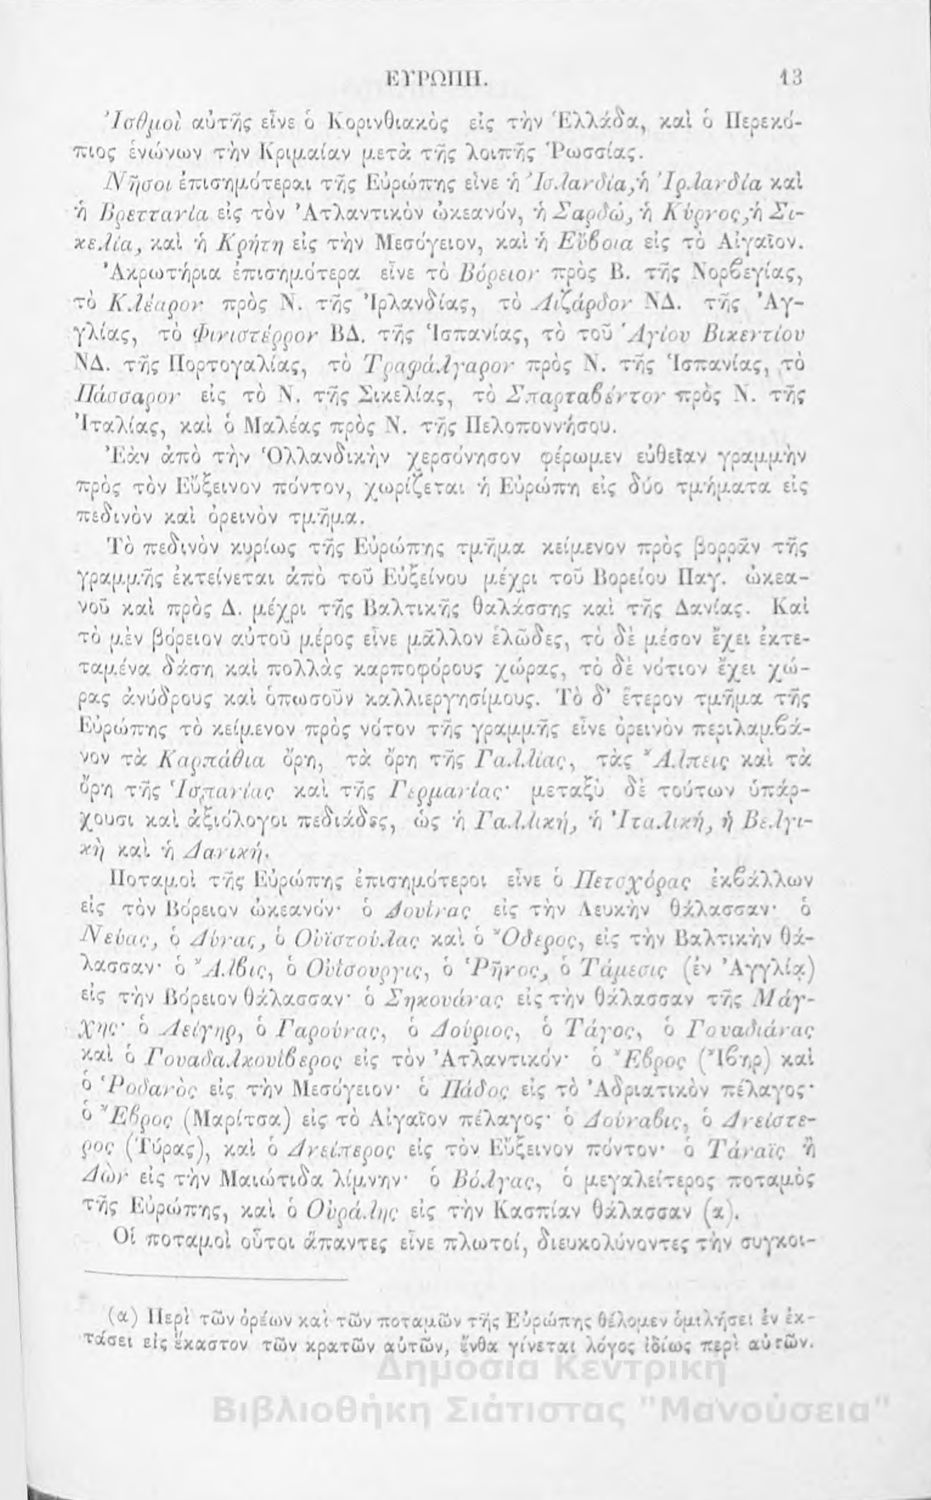 ΕΥΡΩΠΗ. 13
Ἰσθμοὶ αὐτῆς εἶνε ὁ Κορινθιακὸς εἰς τὴν Ἑλλάδα, καὶ ὁ Περεκό-
πιος ἑνώνων τὴν Κριμαίαν μετὰ τῆς λοιπῆς Ῥωσσίας.
Νῆσοι ἐπισημότεραι τῆς Εὐρώπης εἶνε ἡ Ἰσλανδία, ἡ Ἰρλανδία καὶ
ἡ Βρεττανία εἰς τὸν Ἀτλαντικὸν ὠκεανόν, ἡ Σαρδώ, ἡ Κύρνος, ἡ Σι-
κελία, καὶ ἡ Κρήτη εἰς τὴν Μεσόγειον, καὶ ἡ Εὔβοια εἰς τὸ Αἰγαῖον.
Ἀκρωτήρια ἐπισημότερα εἶνε τὸ Βόρειον πρὸς Β. τῆς Νορβεγίας,
τὸ Κλέαρον πρὸς Ν. τῆς Ἰρλανδίας, τὸ Λιζάρδον ΝΔ. τῆς Ἀγ-
γλίας, τὸ Φινιστέρρον ΒΔ. τῆς Ἱσπανίας, τὸ τοῦ Ἁγίου Βικεντίου
ΝΔ. τῆς Πορτογαλίας, τὸ Τραφάλγαρον πρὸς Ν. τῆς Ἱσπανίας, τὸ
Πάσσαρον εἰς τὸ Ν. τῆς Σικελίας, τὸ Σπαρταβέντον πρὸς Ν. τῆς
Ἰταλίας, καὶ ὁ Μαλέας πρὸς Ν. τῆς Πελοποννήσου.
Ἐὰν ἀπὸ τὴν Ὁλλανδικὴν χερσόνησον φέρωμεν εὐθεῖαν γραμμὴν
πρὸς τὸν Εὔξεινον πόντον, χωρίζεται ἡ Εὐρώπη εἰς δύο τμήματα εἰς
πεδινὸν καὶ ὀρεινὸν τμῆμα.
Τὸ πεδινὸν κυρίως τῆς Εὐρώπης τμῆμα κείμενον πρὸς βορρᾶν τῆς
γραμμῆς ἐκτείνεται ἀπὸ τοῦ Εὐξείνου μέχρι τοῦ Βορείου Παγ. ὠκεα-
νοῦ καὶ πρὸς Δ. μέχρι τῆς Βαλτικῆς θαλάσσης καὶ τῆς Δανίας. Καὶ
τὸ μὲν βόρειον αὐτοῦ μέρος εἶνε μᾶλλον ἑλῶδες, τὸ δὲ μέσον ἔχει ἐκτε-
ταμένα δάση καὶ πολλὰς καρποφόρους χώρας, τὸ δὲ νότιον ἔχει χώ-
ρας ἀνύδρους καὶ ὁπωσοῦν καλλιεργησίμους. Τὸ δ' ἕτερον τμῆμα τῆς
Εὐρώπης τὸ κείμενον πρὸς νότον τῆς γραμμῆς εἶνε ὀρεινὸν περιλαμβά-
νον τὰ Καρπάθια ὄρη, τὰ ὄρη τῆς Γαλλίας, τὰς Ἄλπεις καὶ τὰ
ὄρη τῆς Ἱσπανίας καὶ τῆς Γερμανίας· μεταξὺ δὲ τούτων ὑπάρ-
χουσι καὶ ἀξιόλογοι πεδιάδες, ὡς ἡ Γαλλική, ἡ Ἰταλική, ἡ Βελγι-
κὴ καὶ ἡ Δανική.
Ποταμοὶ τῆς Εὐρώπης ἐπισημότεροι εἶνε ὁ Πετσχόρας ἐκβάλλων
εἰς τὸν Βόρειον ὠκεανόν· ὁ Δουίνας εἰς τὴν Λευκὴν θάλασσαν· ὁ
Νεύας, ὁ Δύνας, ὁ Οὐϊστούλας καὶ ὁ Ὄδερος, εἰς τὴν Βαλτικὴν θά-
λασσαν· ὁ Ἄλβις, ὁ Οὐΐσουργις, ὁ Ῥῆνος, ὁ Τάμεσις (ἐν Ἀγγλίᾳ)
εἰς τὴν Βόρειον θάλασσαν· ὁ Σηκουάνας εἰς τὴν θάλασσαν τῆς Μάγ-
χης· ὁ Λείγηρ, ὁ Γαρούνας, ὁ Δούριος, ὁ Τάγος, ὁ Γουαδιάνας
καὶ ὁ Γουαδαλκουίβερος εἰς τὸν Ἀτλαντικόν· ὁ Ἔβρος (Ἴβηρ) καὶ
ὁ Ῥοδανὸς εἰς τὴν Μεσόγειον· ὁ Πάδος εἰς τὸ Ἀδριατικὸν πέλαγος·
ὁ Ἕβρος (Μαρίτσα) εἰς τὸ Αἰγαῖον πέλαγος· ὁ Δούναβις, ὁ Δνείστε-
ρος (Τύρας), καὶ ὁ Δνείπερος εἰς τὸν Εὔξεινον πόντον· ὁ Τάναϊς ἢ
Δὼν εἰς τὴν Μαιώτιδα λίμνην· ὁ Βόλγας, ὁ μεγαλείτερος ποταμὸς
τῆς Εὐρώπης, καὶ ὁ Οὐράλης εἰς τὴν Κασπίαν θάλασσαν (α).
Οἱ ποταμοὶ οὗτοι ἅπαντες εἶνε πλωτοί, διευκολύνοντες τὴν συγκοι-
(α) Περὶ τῶν ὀρέων καὶ τῶν ποταμῶν τῆς Εὐρώπης θέλομεν ὁμιλήσει ἐν ἐκ-
τάσει εἰς ἕκαστον τῶν κρατῶν αὐτῶν, ἔνθα γίνεται λόγος ἰδίως περὶ αὐτῶν.
Δημόσια Κεντρική
Βιβλιοθήκη Σιάτιστας "Μανούσεια"